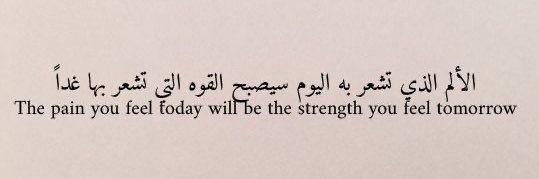 الألم الذي تشعر به اليوم سيصبح القوه التي تشعر بها غداً
The pain you feel today will be the strength you feel tomorrow